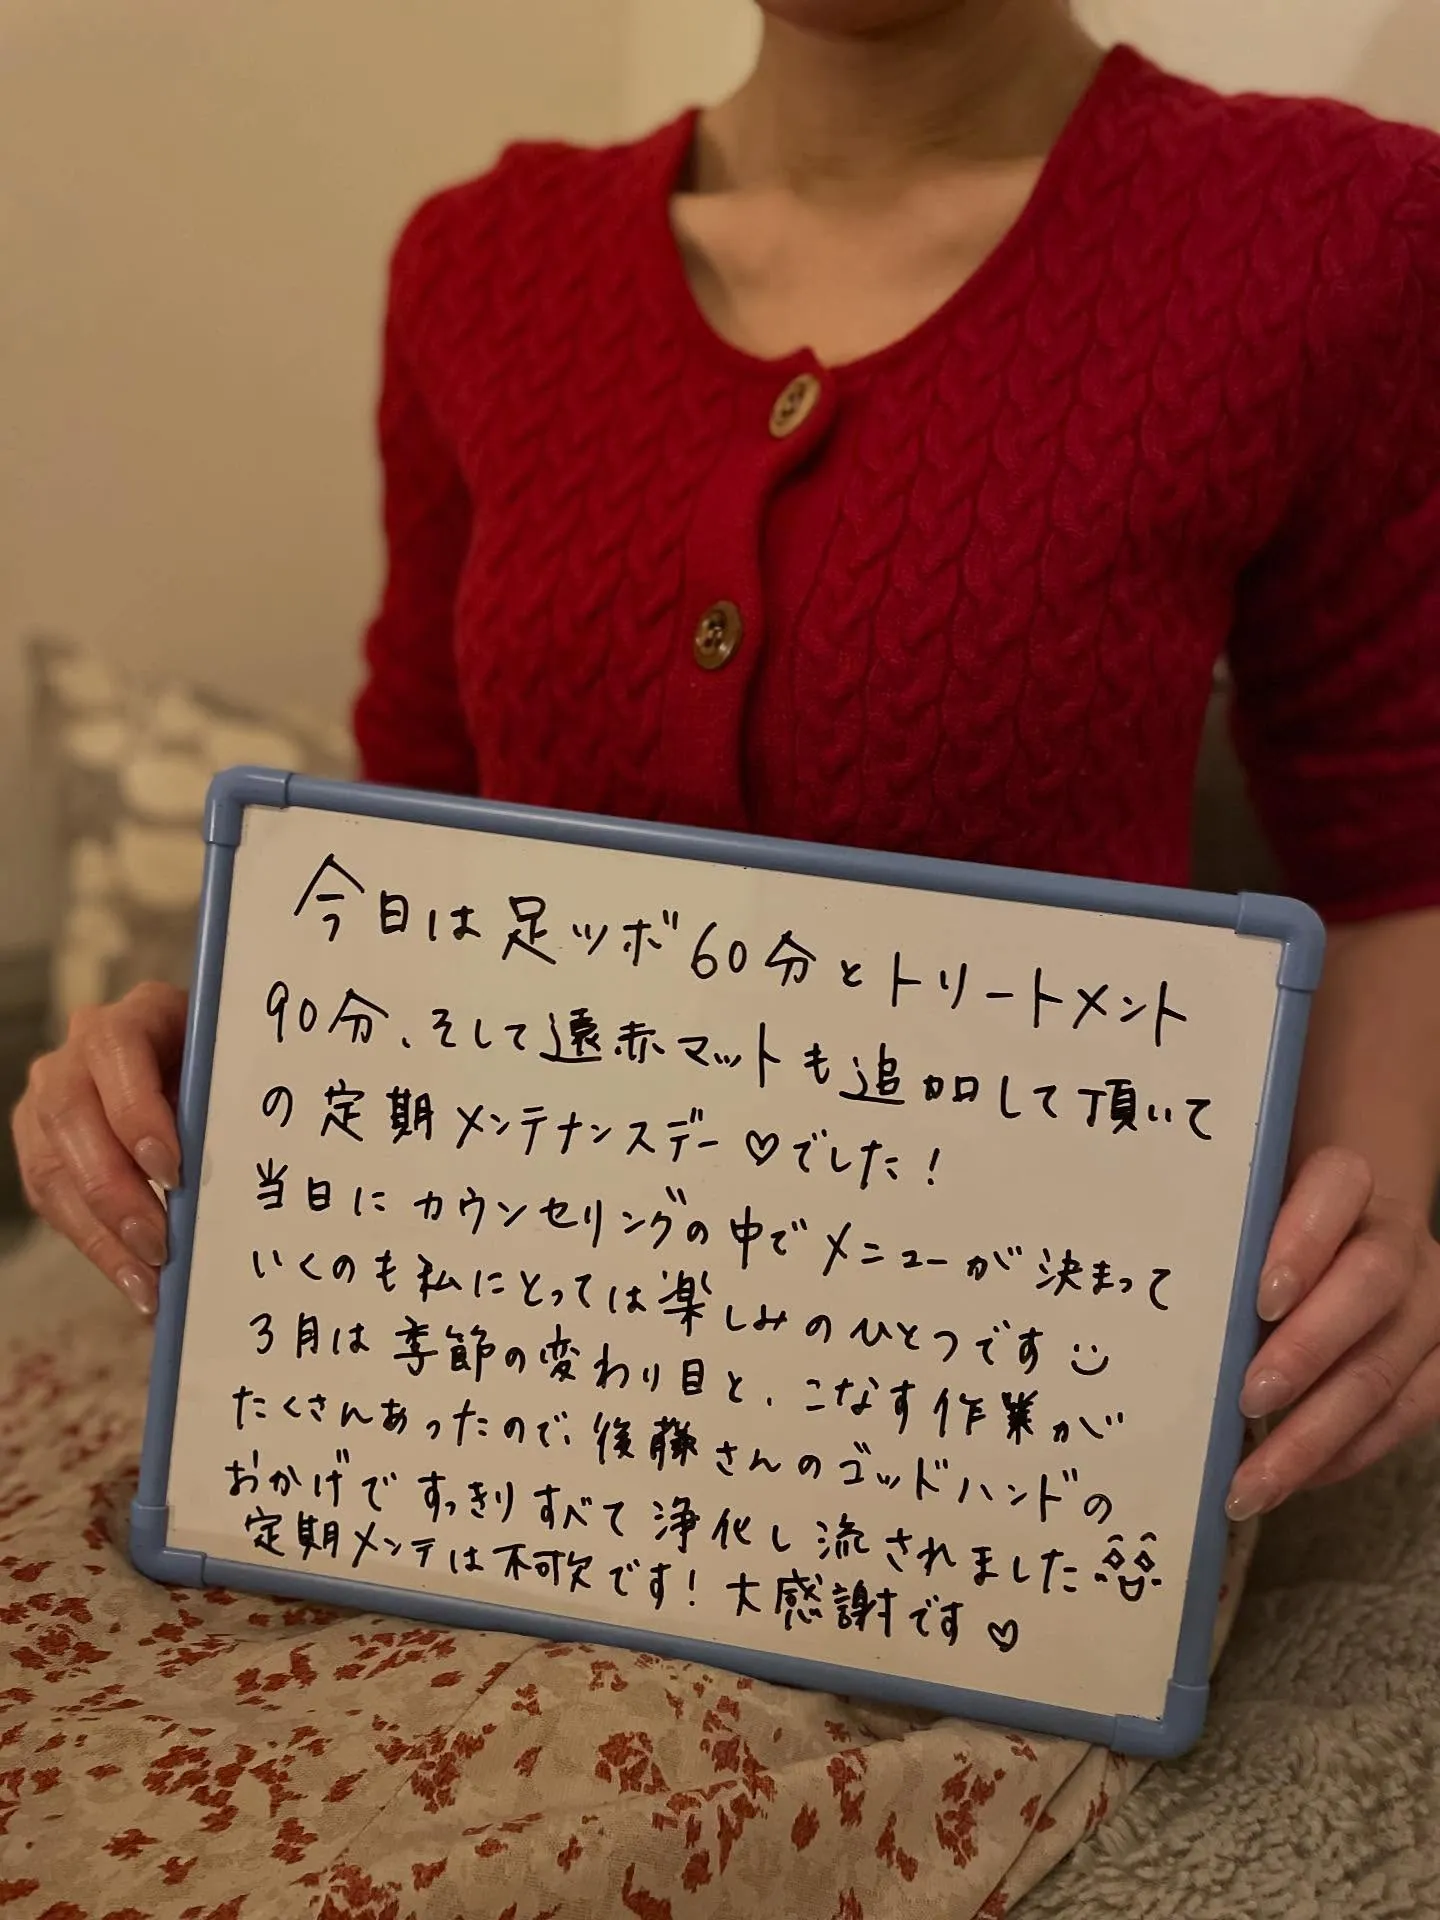 今日は足ツボ60分とトリートメント
90分、そして遠赤マットも追加して頂いて
の定期メンテナンスデー♡でした!
当日にカウンセリングの中でメニューが決まって
いくのも私にとっては楽しみのひとつです
3月は季節の変わり目と、こなす作業が
たくさんあったので、後藤さんのゴッドハンドの
おかげですっきりすべて浄化し流されました
定期メンテは不可欠です!大感謝です♡